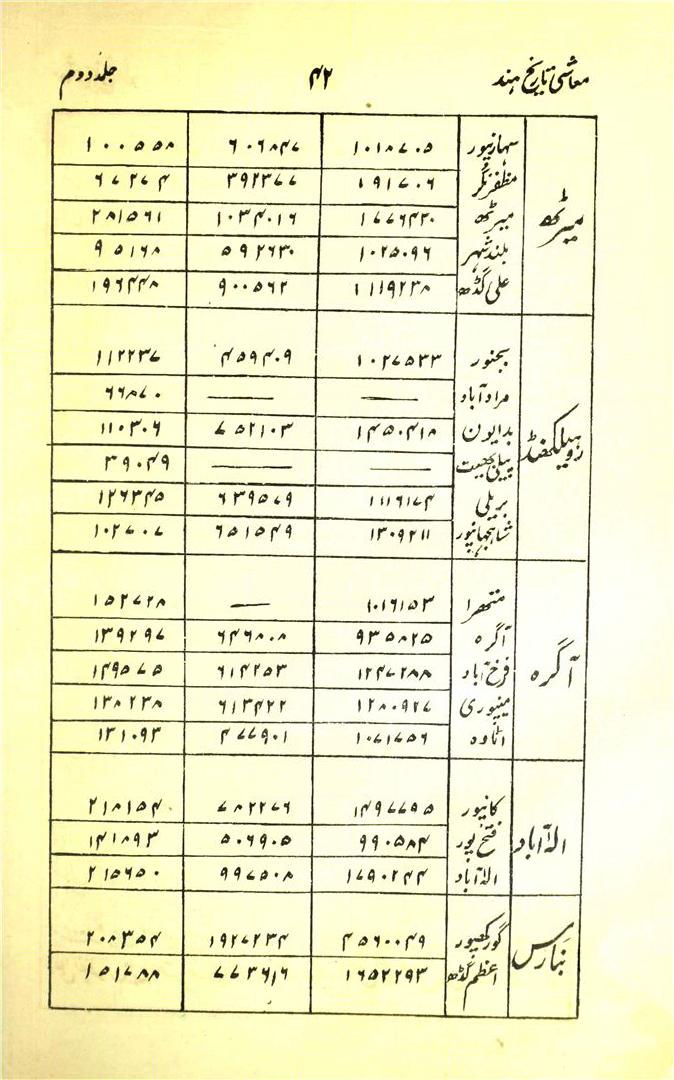 معاشی تاریخ ہند ۴۲ جلد دوم
میرٹھ
سہارنپور ۱۰۱۸۷۰۵ ۶۰۶۸۴۷ ۱۰۰۵۵۸
مظفرنگر ۱۹۱۷۰۶ ۳۹۲۳۷۷ ۶۷۲۷۴
میرٹھ ۱۷۷۶۴۳۰ ۱۰۳۴۰۱۶ ۲۸۱۵۶۱
بلندشہر ۱۰۲۵۰۹۶ ۵۹۲۶۳۰ ۹۵۱۶۸
علی گڈھ ۱۱۱۹۲۳۸ ۹۰۰۵۶۲ ۱۹۶۴۴۸
روہیلکھنڈ
بجنور ۱۰۲۷۵۳۳ ۴۵۹۴۰۹ ۱۱۲۲۳۷
مرادآباد — — ۶۶۸۷۰
بدایون ۱۴۵۰۴۱۸ ۷۵۲۱۰۳ ۱۱۰۳۰۶
پیلی بھیت — — ۳۹۰۴۹
بریلی ۱۱۱۶۱۷۴ ۶۳۹۵۷۹ ۱۲۶۳۴۵
شاہجہانپور ۱۳۰۹۲۱۱ ۶۵۱۵۴۹ ۱۰۲۷۰۷
آگرہ
متھرا ۱۰۱۶۱۵۳ — ۱۵۲۷۲۸
آگرہ ۹۳۵۸۲۵ ۶۴۶۸۰۸ ۱۳۹۲۹۷
فرخ آباد ۱۲۴۷۲۸۸ ۶۱۴۲۵۳ ۱۴۹۵۷۵
مینپوری ۱۲۸۰۹۲۷ ۶۱۳۴۲۲ ۱۳۸۲۳۸
اٹاوہ ۱۰۷۱۷۵۶ ۴۷۷۹۰۱ ۱۳۱۰۹۳
الہ آباد
کانپور ۱۴۹۷۷۹۵ ۷۸۲۲۷۶ ۲۱۸۱۵۴
فتح پور ۹۹۰۵۸۴ ۵۰۶۹۰۵ ۱۴۱۸۹۳
الہ آباد ۱۷۹۰۲۴۴ ۹۹۷۵۰۸ ۲۱۵۶۵۰
بنارس
گورکھپور ۴۵۶۰۰۴۹ ۱۹۲۷۲۳۴ ۲۰۸۳۵۴
اعظم گڈھ ۱۶۵۲۲۹۳ ۷۷۳۶۱۶ ۱۵۱۷۸۸